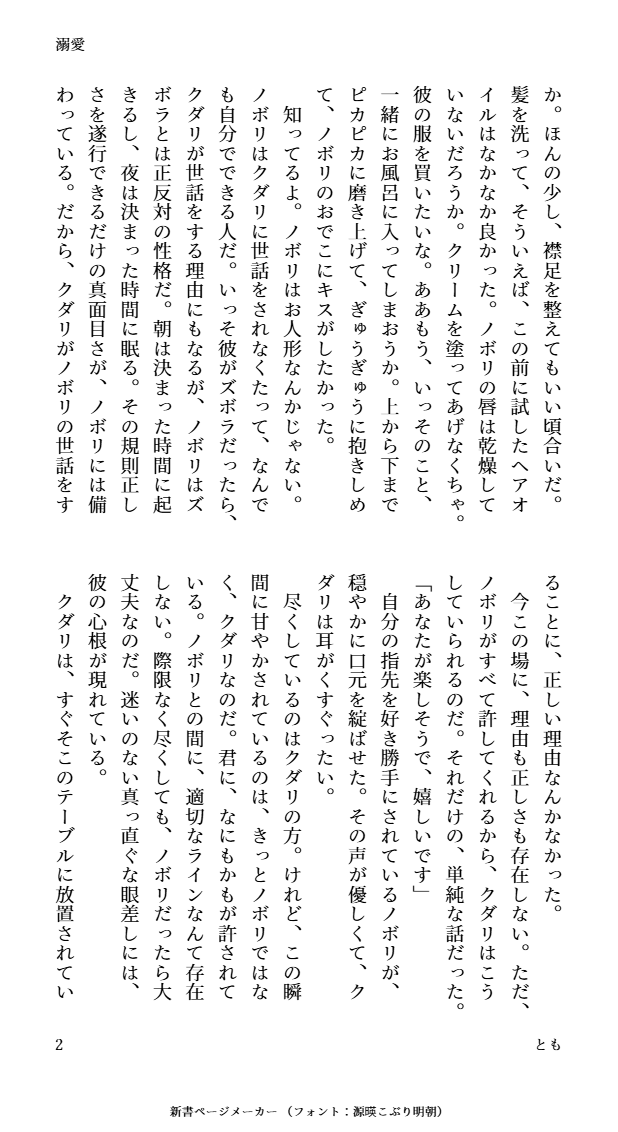 溺愛
か。ほんの少し、襟足を整えてもいい頃合いだ。
髪を洗って、そういえば、この前に試したヘアオ
イルはなかなか良かった。ノボリの唇は乾燥して
いないだろうか。クリームを塗ってあげなくちゃ。
彼の服を買いたいな。ああもう、いっそのこと、
一緒にお風呂に入ってしまおうか。上から下まで
ピカピカに磨き上げて、ぎゅうぎゅうに抱きしめ
て、ノボリのおでこにキスがしたかった。
　知ってるよ。ノボリはお人形なんかじゃない。
ノボリはクダリに世話をされなくたって、なんで
も自分でできる人だ。いっそ彼がズボラだったら、
クダリが世話をする理由にもなるが、ノボリはズ
ボラとは正反対の性格だ。朝は決まった時間に起
きるし、夜は決まった時間に眠る。その規則正し
さを遂行できるだけの真面目さが、ノボリには備
わっている。だから、クダリがノボリの世話をす
ることに、正しい理由なんかなかった。
　今この場に、理由も正しさも存在しない。ただ、
ノボリがすべて許してくれるから、クダリはこう
していられるのだ。それだけの、単純な話だった。
「あなたが楽しそうで、嬉しいです」
　自分の指先を好き勝手にされているノボリが、
穏やかに口元を綻ばせた。その声が優しくて、ク
ダリは耳がくすぐったい。
　尽くしているのはクダリの方。けれど、この瞬
間に甘やかされているのは、きっとノボリではな
く、クダリなのだ。君に、なにもかもが許されて
いる。ノボリとの間に、適切なラインなんて存在
しない。際限なく尽くしても、ノボリだったら大
丈夫なのだ。迷いのない真っ直ぐな眼差しには、
彼の心根が現れている。
　クダリは、すぐそこのテーブルに放置されてい
2
とも
新書ページメーカー（フォント：源暎こぶり明朝）